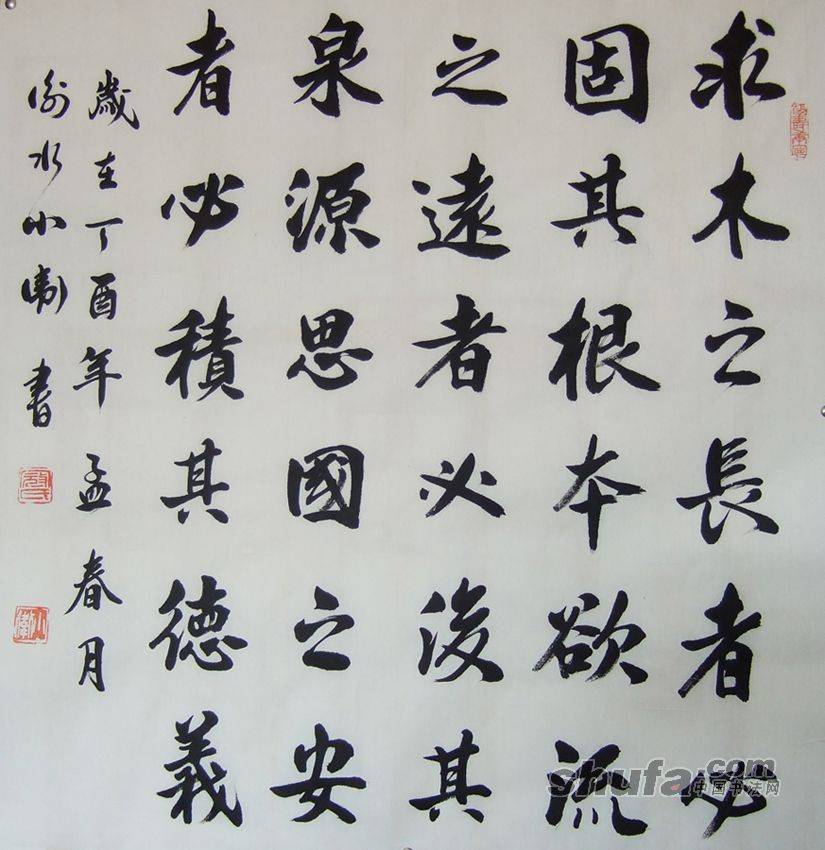 求木之長者必
固其根本欲流
之遠者必浚其
泉源思國之安
者必積其德義
歲在丁酉年孟春月
渝水小衛書
shufa.com
中国书法网